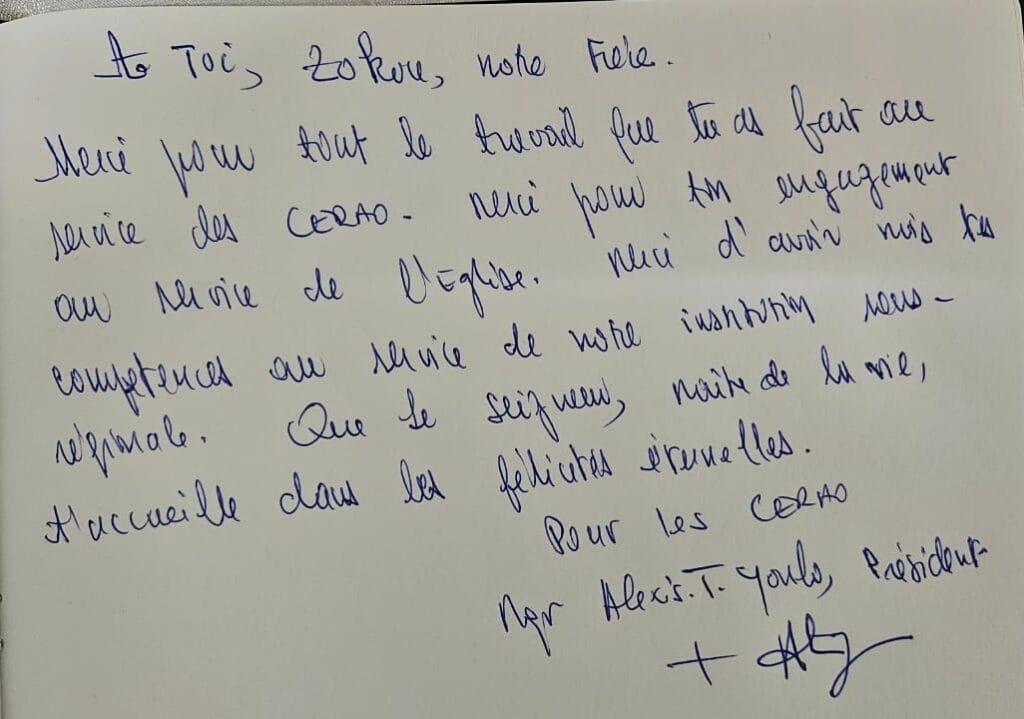 A Toi, Zokou, notre Frère.
Merci pour tout le travail que tu as fait au
service des CERAO. Merci pour ton engagement
au service de l'Eglise. Merci d'avoir mis tes
compétences au service de notre institution sous-
régionale. Que le Seigneur, maître de la vie,
t'accueille dans les félicités éternelles.
Pour les CERAO
Mgr Alexis. T. Youlo, Président
+